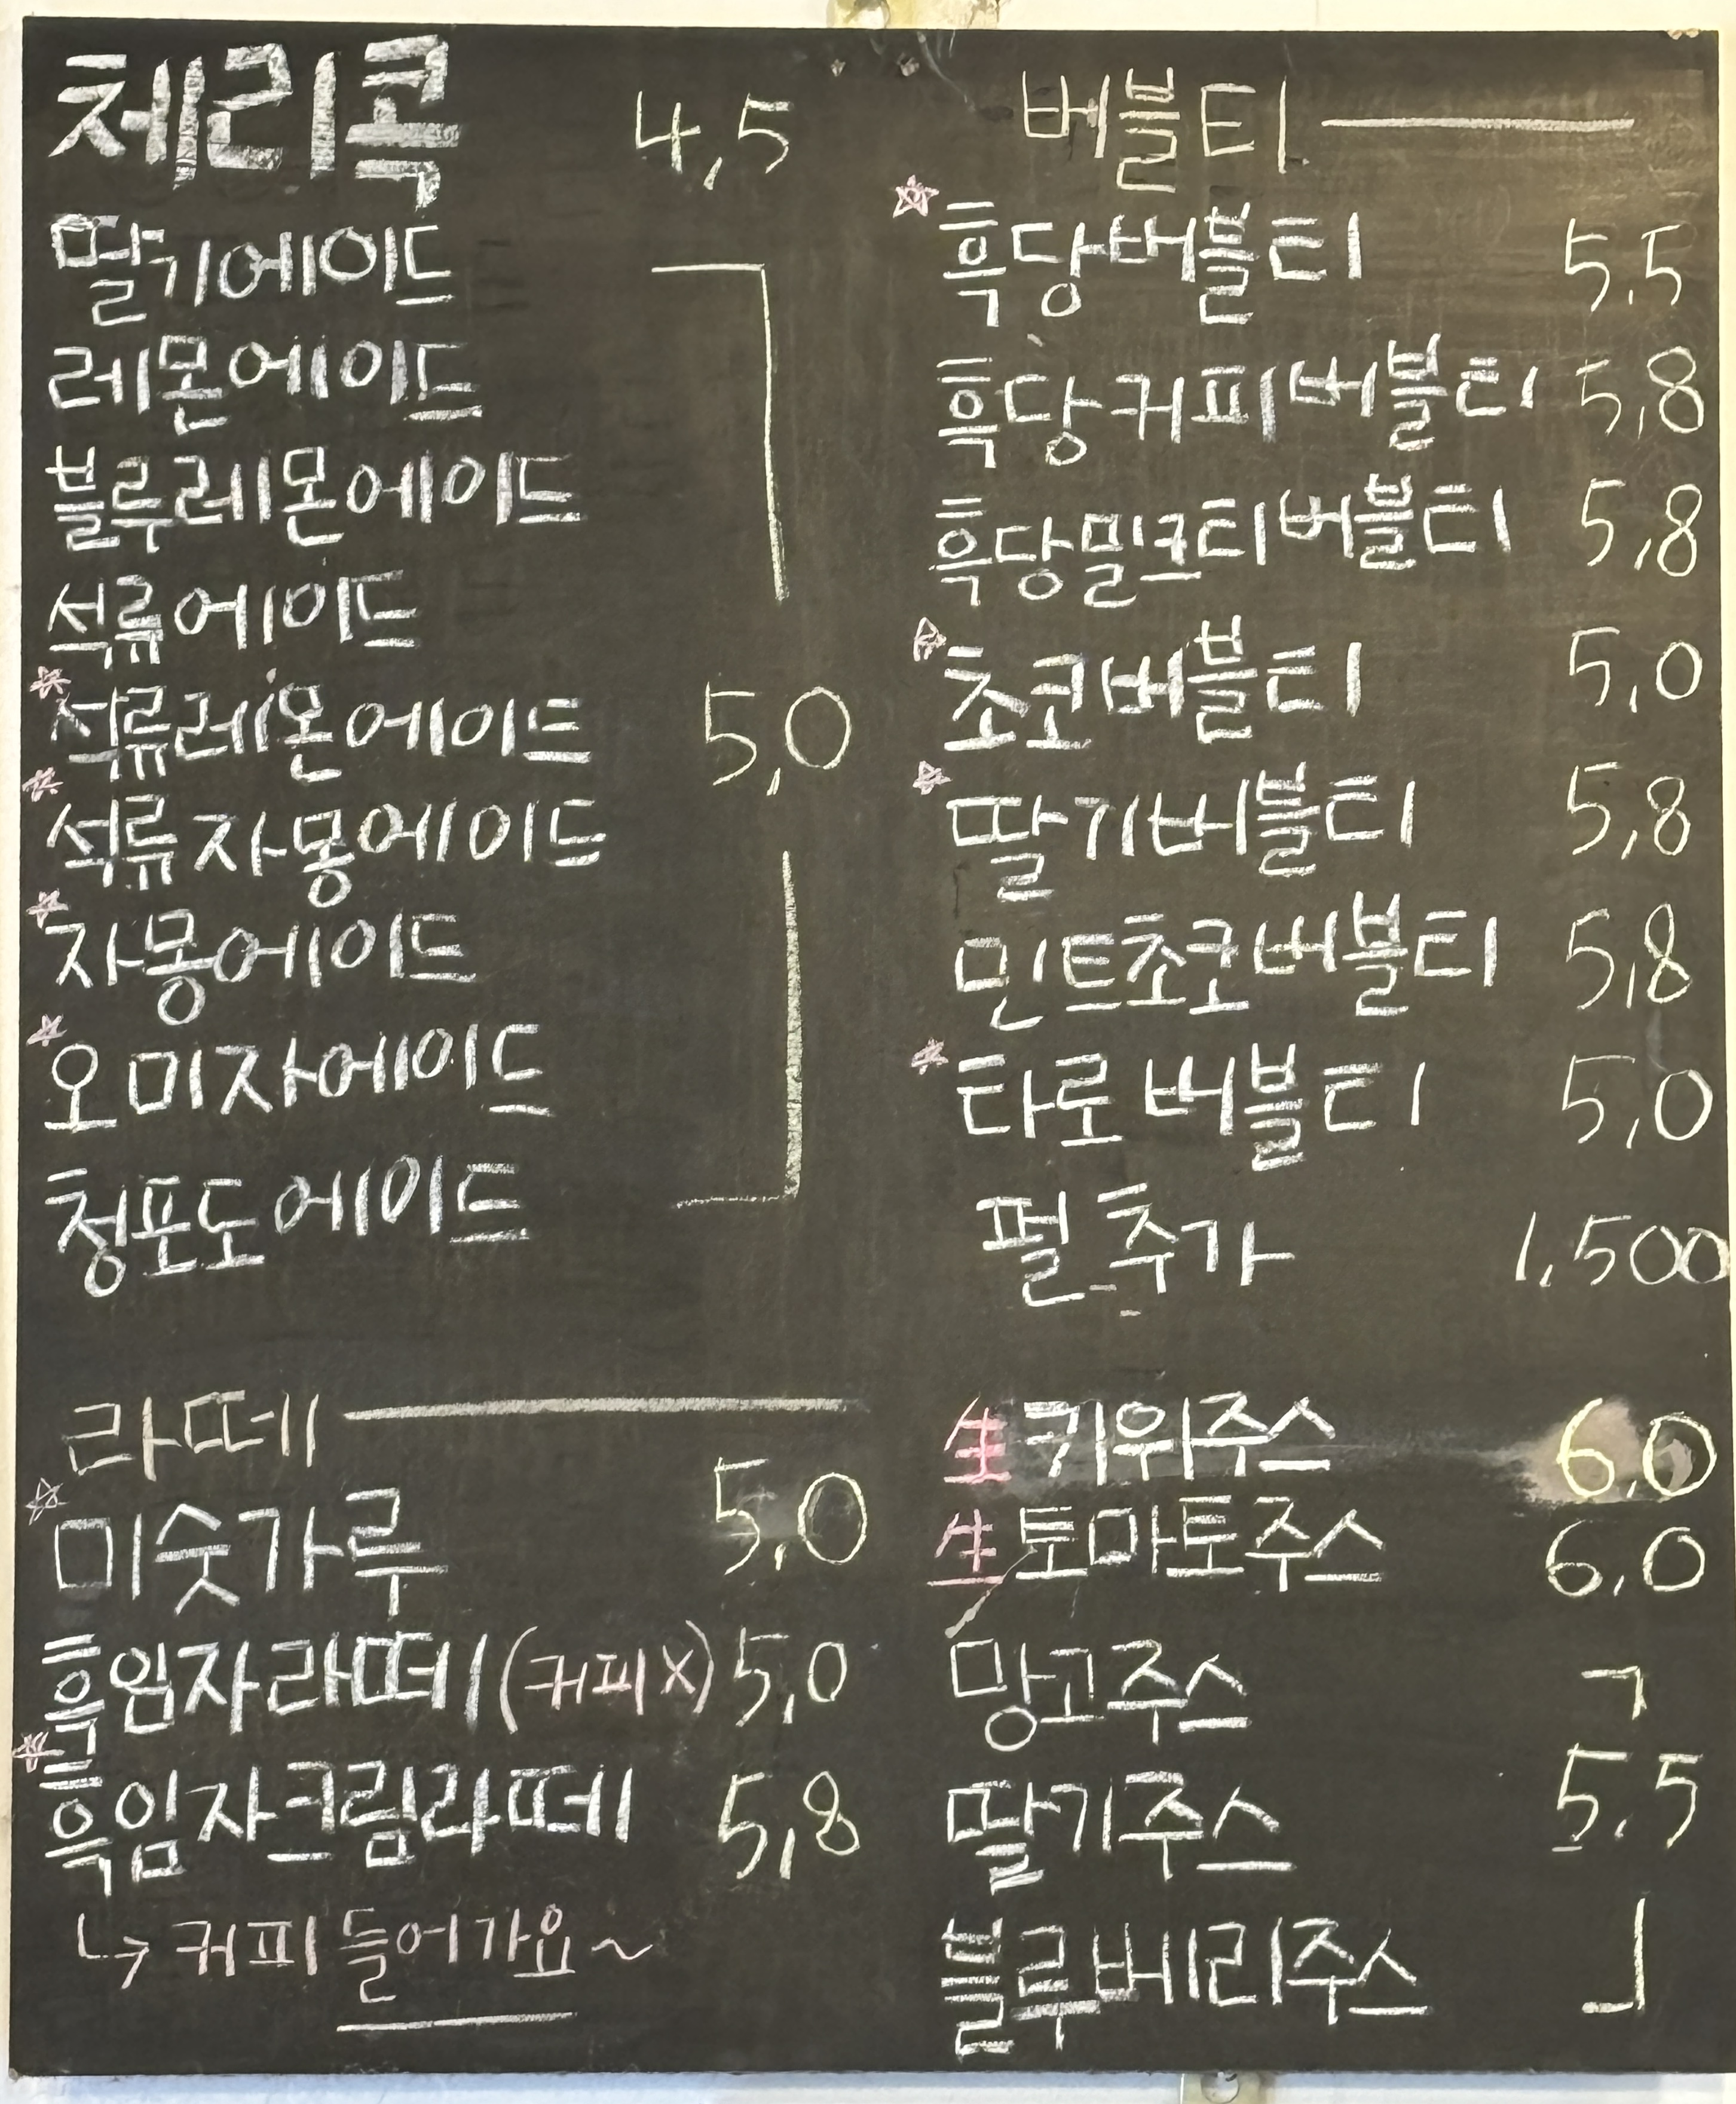 체리콕 4,5
딸기에이드
레몬에이드
블루레몬에이드
석류에이드
석류레몬에이드 5,0
석류자몽에이드
자몽에이드
오미자에이드
청포도에이드
라떼
미숫가루 5,0
흑임자라떼(커피X) 5,0
흑임자크림라떼 5,8
↳ 커피 들어가요~
버블티
흑당버블티 5,5
흑당커피버블티 5,8
흑당밀크티버블티 5,8
초코버블티 5,0
딸기버블티 5,8
민트초코버블티 5,8
타로버블티 5,0
펄 추가 1,500
生 키위주스 6,0
生 토마토주스 6,0
망고주스
딸기주스 5,5
블루베리주스